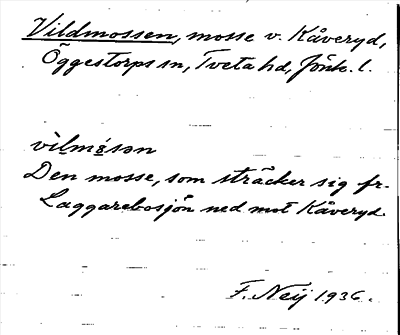 Vildmossen, mosse v. Kåveryd,
Öggestorps sn, Tveta hd, Jönk. l.
vìlmósən
Den mosse, som sträcker sig fr.
Laggarebosjön ned mot Kåveryd.
F. Neij 1936.